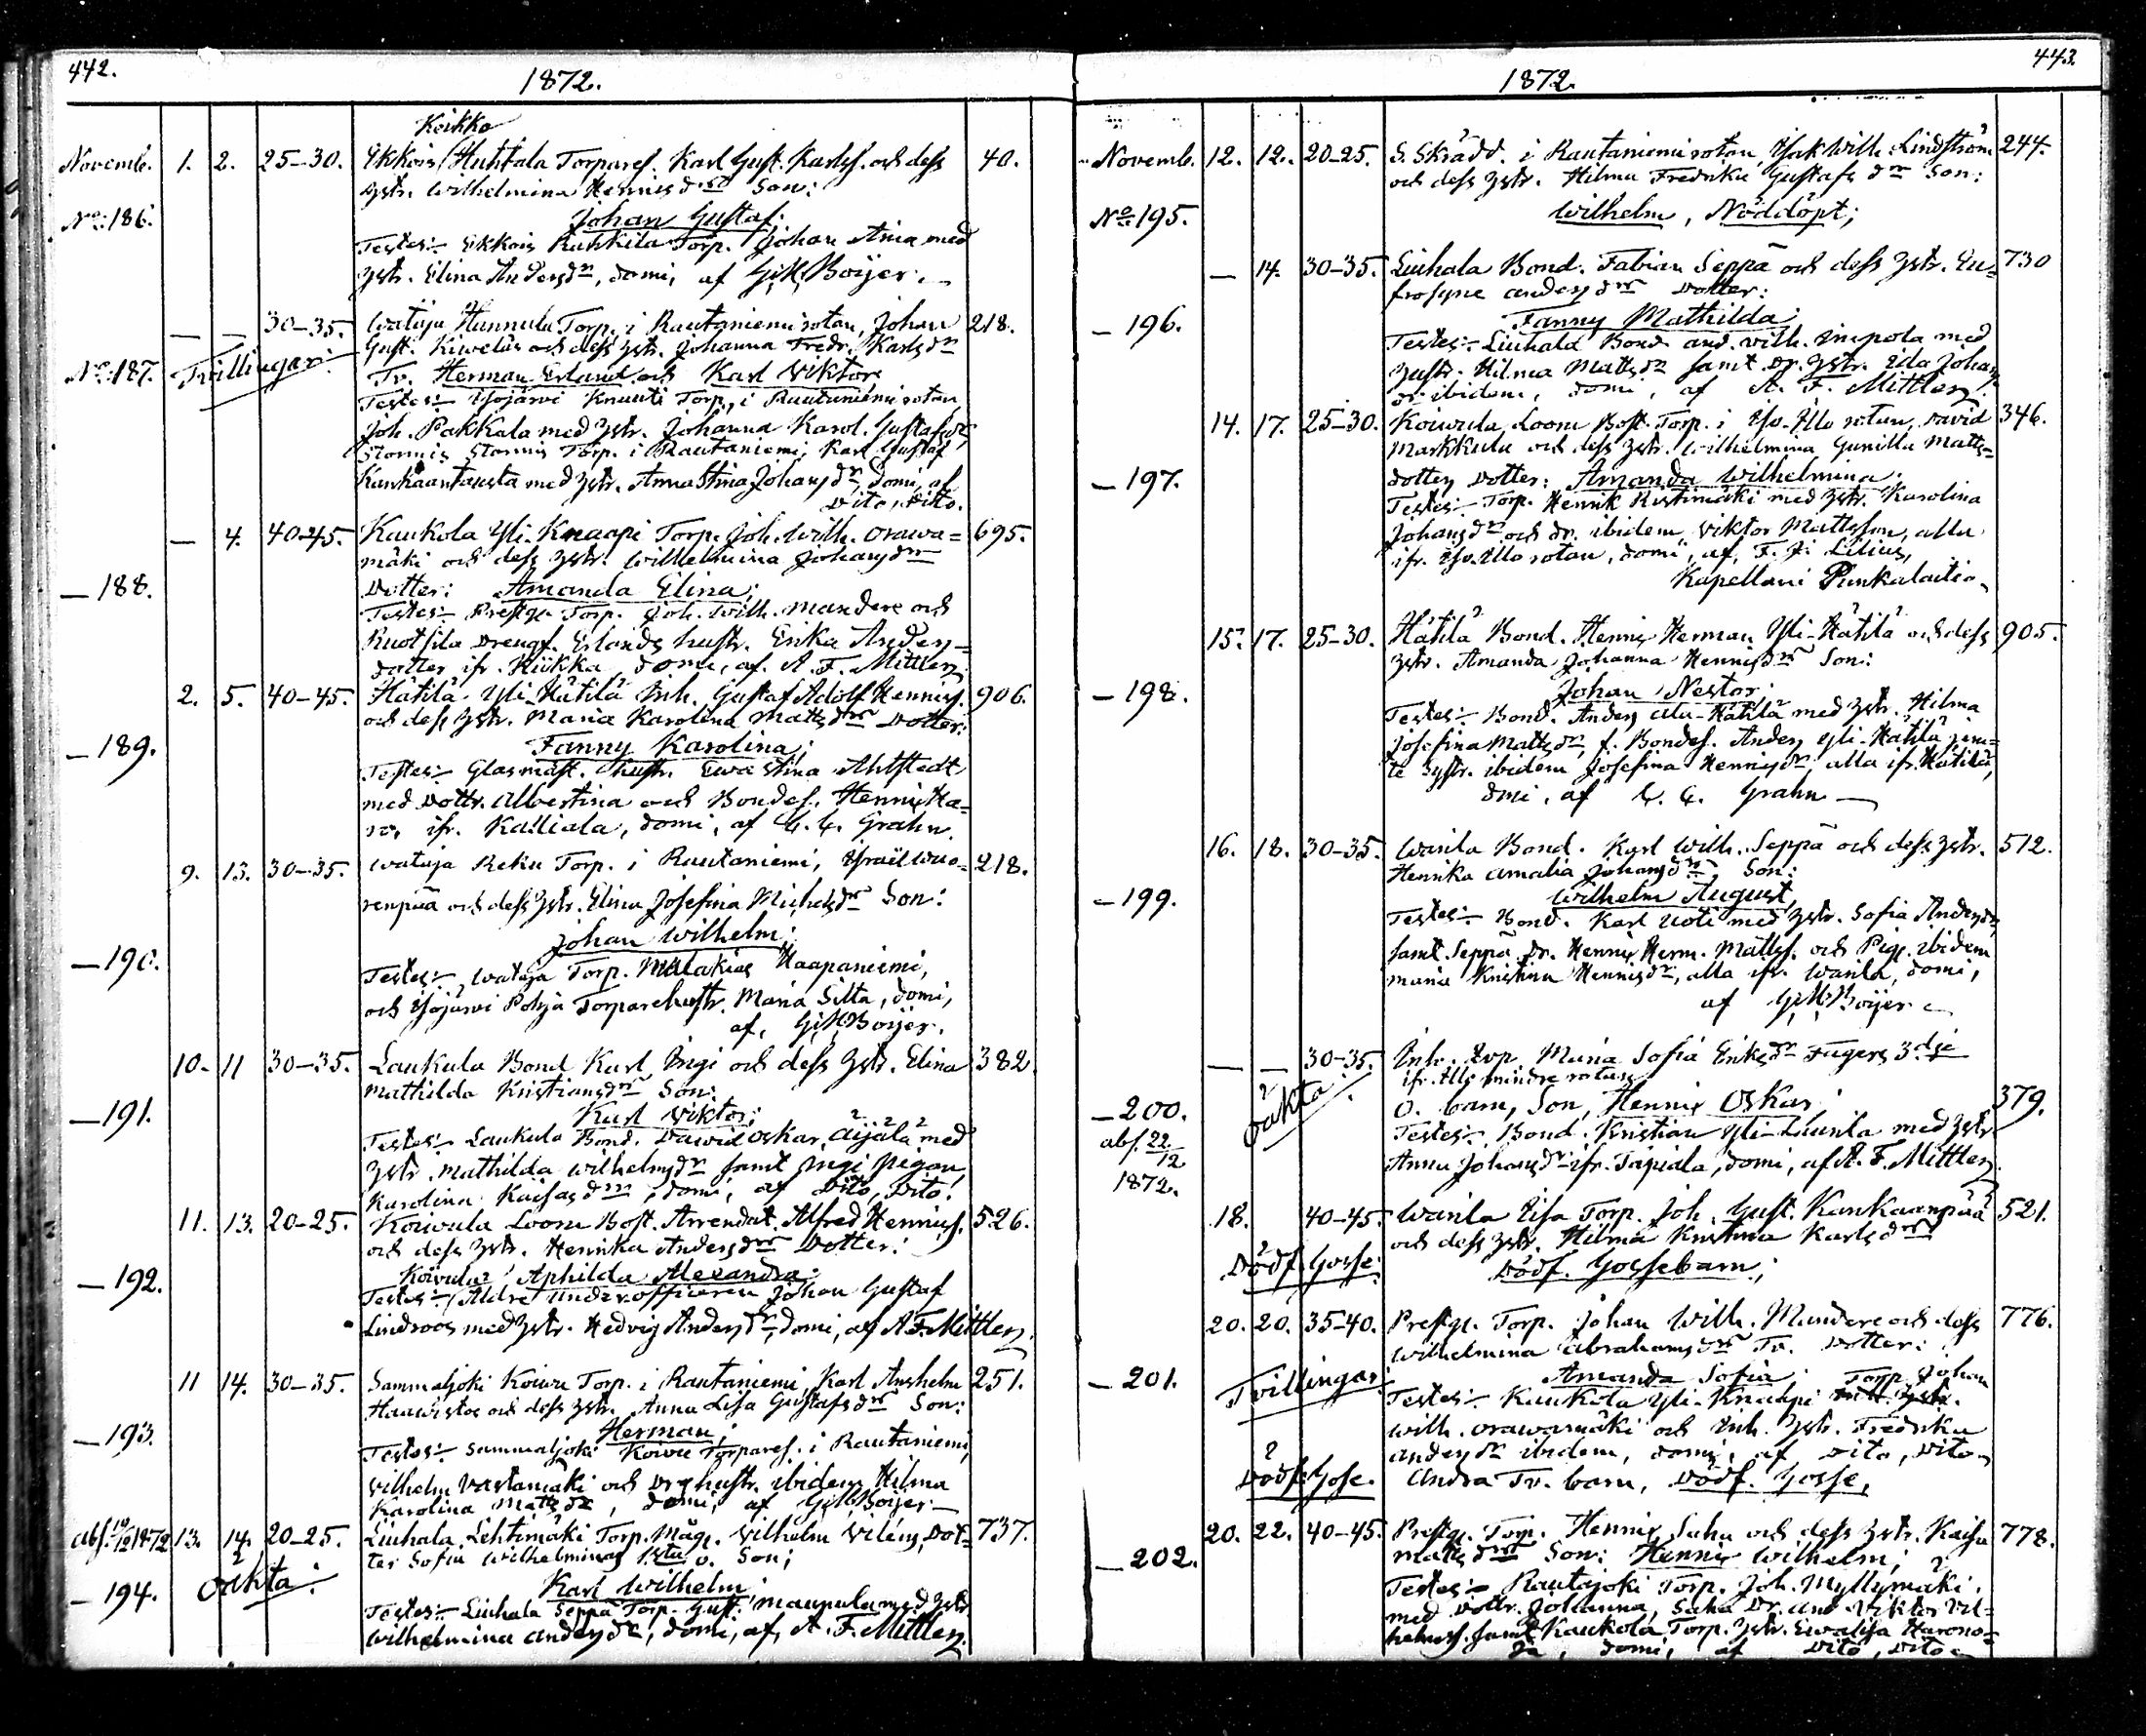 442.
1872.
Keikko
Novemb. 1. 2. 25-30. Ekkois Huhtala Torpares. Karl Gust. Karlss. och dess 40.
hstr. Wilhelmina Henriksdr Son:
No: 186. Johan Gustaf;
Testes:- Ekkois Torp. Johan Ania med
hstr. Elina Andersdr, domi, af G. H. Boijer.
— — 30-35. Wataja Hunnula Torp. i Rautaniemi rotan, Johan 218.
Gust. Kiweläs och dess hstr. Johanna Fredr. Karlsdr
No: 187. Tvillingar: Tv. Herman Erland och Karl Viktor,
Testes:- Isojärvi Knuuti Torp. i Rautaniemi rotan,
Joh. Pakkala med hstr. Johanna Karol. Gustafsdr
Stormis Stormis Torp. i Rautaniemi, Karl Gustaf
Kankaantausta med hstr. Anna Stina Johansdr, domi, af
Dito, Dito.
— 4. 40-45. Kaukola Yli-Knaapi Torp. Joh. Wilh. Orawa= 695.
mäki och dess hstr. Wilhelmina Johansdr
— 188. Dotter: Amanda Elina;
Testes:- Prestg. Torp. Joh. Wilh. Mandere och
Ruotsila Drengs. Erlands hustr. Erika Anders=
dotter ifr. Kiikka, domi, af A. F. Mittler.
2. 5. 40-45. Hätilä Yli-Hätilä Inh. Gustaf Adolf Henrikss. 906.
och dess hstr. Maria Karolina Mattsdr Dotter:
— 189. Fanny Karolina;
Testes:- Glasmäst. hustr. Ewa Stina Ahlstedt
med dottr. Albertina och Bondes. Henrik
ifr. Kalliala, domi, af C. C. Grahn.
9. 13. 30-35. Wataja Reku Torp. i Rautaniemi, Israel Wuo- 218.
renpää och dess hstr. Elina Josefina Michelsdr Son:
Johan Wilhelm;
— 190. Testes:- Wataja Torp. Malakias Haapaniemi,
och Isojärvi Pohja Torparehustr. Maria Silta, domi,
af, G. H. Boijer.
10. 11 30-35. Laukula Bond Karl Ingi och dess hstr. Elina 382
Mathilda Kristiansdr Son:
— 191. Karl Viktor;
Testes:- Laukula Bond. David Oskar Äijälä med
hstr. Mathilda Wilhelmsdr samt Ingi pigan
Karolina Kaisasdr, domi, af Dito, Dito.
11. 13. 20-25. Koiwula Loom Bost. Arrendat. Alfred Henrikss. 526.
och dess hstr. Henrika Andersdr Dotter:
— 192. Koivula Aphilda Alexandra;
Testes:- Äldre Underofficeren Johan Gustaf
Lindroos med hstr. Hedvig Andersdr, domi, af A. F. Mittler.
11 14. 30-35. Sammaljoki Koiwu Torp. i Rautaniemi, Karl Anshelm 251.
Haawistos och dess hstr. Anna Lisa Gustafsdr Son:
— 193. Herman;
Testes:- Sammaljoki Koivu Torpares. i Rautaniemi,
Wilhelm Vastamäki och Drghustr. ibidem Hilma
Karolina Mattsdr, domi, af G. H. Boijer.
abs. 10/12 1872 13. 14. 20-25. Liuhala Lehtimäki Torp. Måg. Wilhelm Viléns Dot= 737.
ter Sofia Wilhelminas 1sta o. Son;
— 194. oäkta: Karl Wilhelm;
Testes:- Liuhala Seppä Torp. Gust. Maupula med hstr.
Wilhelmina Andersdr, domi, af, A. F. Mittler.
443.
1872.
Novemb. 12. 12. 20-25. S. Skrädd. i Rautaniemi rotan, Isak Wilh. Lindström 244.
och dess hstr. Hilma Fredrika Gustafsdr Son:
No 195. Wilhelm, Nöddöpt;
— 14. 30-35. Liuhala Bond. Fabian Seppä och dess hstr. Eu= 730
frosyne Andersdr Dotter:
— 196. Fanny Mathilda;
Testes:- Liuhala Bond. And. Wilh. Impola med
hustr. Hilma Mattsdr samt Dr. hstr. Ida Johans
dr ibidem, domi, af A. F. Mittler.
14. 17. 25-30. Koiwula Loom Bost. Torp. i Iso-Illo rotan, David 346.
Markkula och dess hstr. Wilhelmina Gunilla Matts=
— 197. dotter Dotter: Amanda Wilhelmina
Testes:- Torp. Henrik Ristimäki med hstr. Karolina
Johansdr och dr. ibidem Viktor Mattsson, alla
ifr. Iso-Illo rotan, domi, af, F. J. Lilius,
Kapellan i Punkalaitio.
15. 17. 25-30. Hätilä Bond. Henrik Herman Yli-Hätilä och dess 905.
hstr. Amanda Johanna Henriksdr Son:
— 198. Johan Nestor;
Testes:- Bond. Anders Ala-Hätilä med hstr. Hilma
Josefina Mattsdr, f. Bondes. Anders Yli-Hätilä jem=
te Systr. ibidem Josefina Henriksdr, alla ifr. Hätilä,
domi, af C. C. Grahn
16. 18. 30-35. Wanla Bond. Karl Wilh. Seppä och dess hstr. 512.
Henrika Amalia Johansdr Son:
— 199. Wilhelm August,
Testes:- Bond. Karl Uoti med hstr. Sofia Andersdr,
samt Seppä Dr. Henrik Herm. Mattss. och Pig. ibidem
Maria Kristina Henriksdr, alla ifr. Wanla, domi,
af G. H. Boijer.
— — 30-35. Inh. Maria Sofia Eriksdr Fagers 3dje
ifr. Illo mindre rotan
— 200. oäkta: o. barn, Son, Henrik Oskar; 379.
abs. 22/12 1872. Testes:- Bond. Kristian Yli-Launla med hstr
Anna Johansdr ifr. Tapiala, domi, af A. F. Mittler.
18. 40-45. Wanla Eisa Torp. Joh. Gust. Kankaanpää 521.
och dess hstr. Hilma Kristina Karlsdr
Dödf. Gosse: Dödf. Gossebarn;
20. 20. 35-40. Prestg. Torp. Johan Wilh. Mandere och dess 776.
Wilhelmina Abrahamsdr Tv. Dotter:
— 201. Tvillingar: Amanda Sofia; Torp. Johan
Testes:- Kaukola Yli-Knaapi
Wilh. Orawamäki och Inh. hstr. Fredrika
Andersdr ibidem, domi, af Dito, Dito.
Dödf: Gosse. Andra Tv. barn, Dödf. Gosse,
20. 22. 40-45. Prestg. Torp. Henrik Saha och dess hstr. Kaisa 778.
Mattsdr Son: Henrik Wilhelm;
— 202. Testes:- Rautajoki Torp. Joh. Myllymäki.
med Dottr. Johanna, Saha Dr. And. Viktor Vil=
helmss. samt Kaukola Torp. hstr. Ewa Lisa Harono=
ja, domi, af Dito, Dito